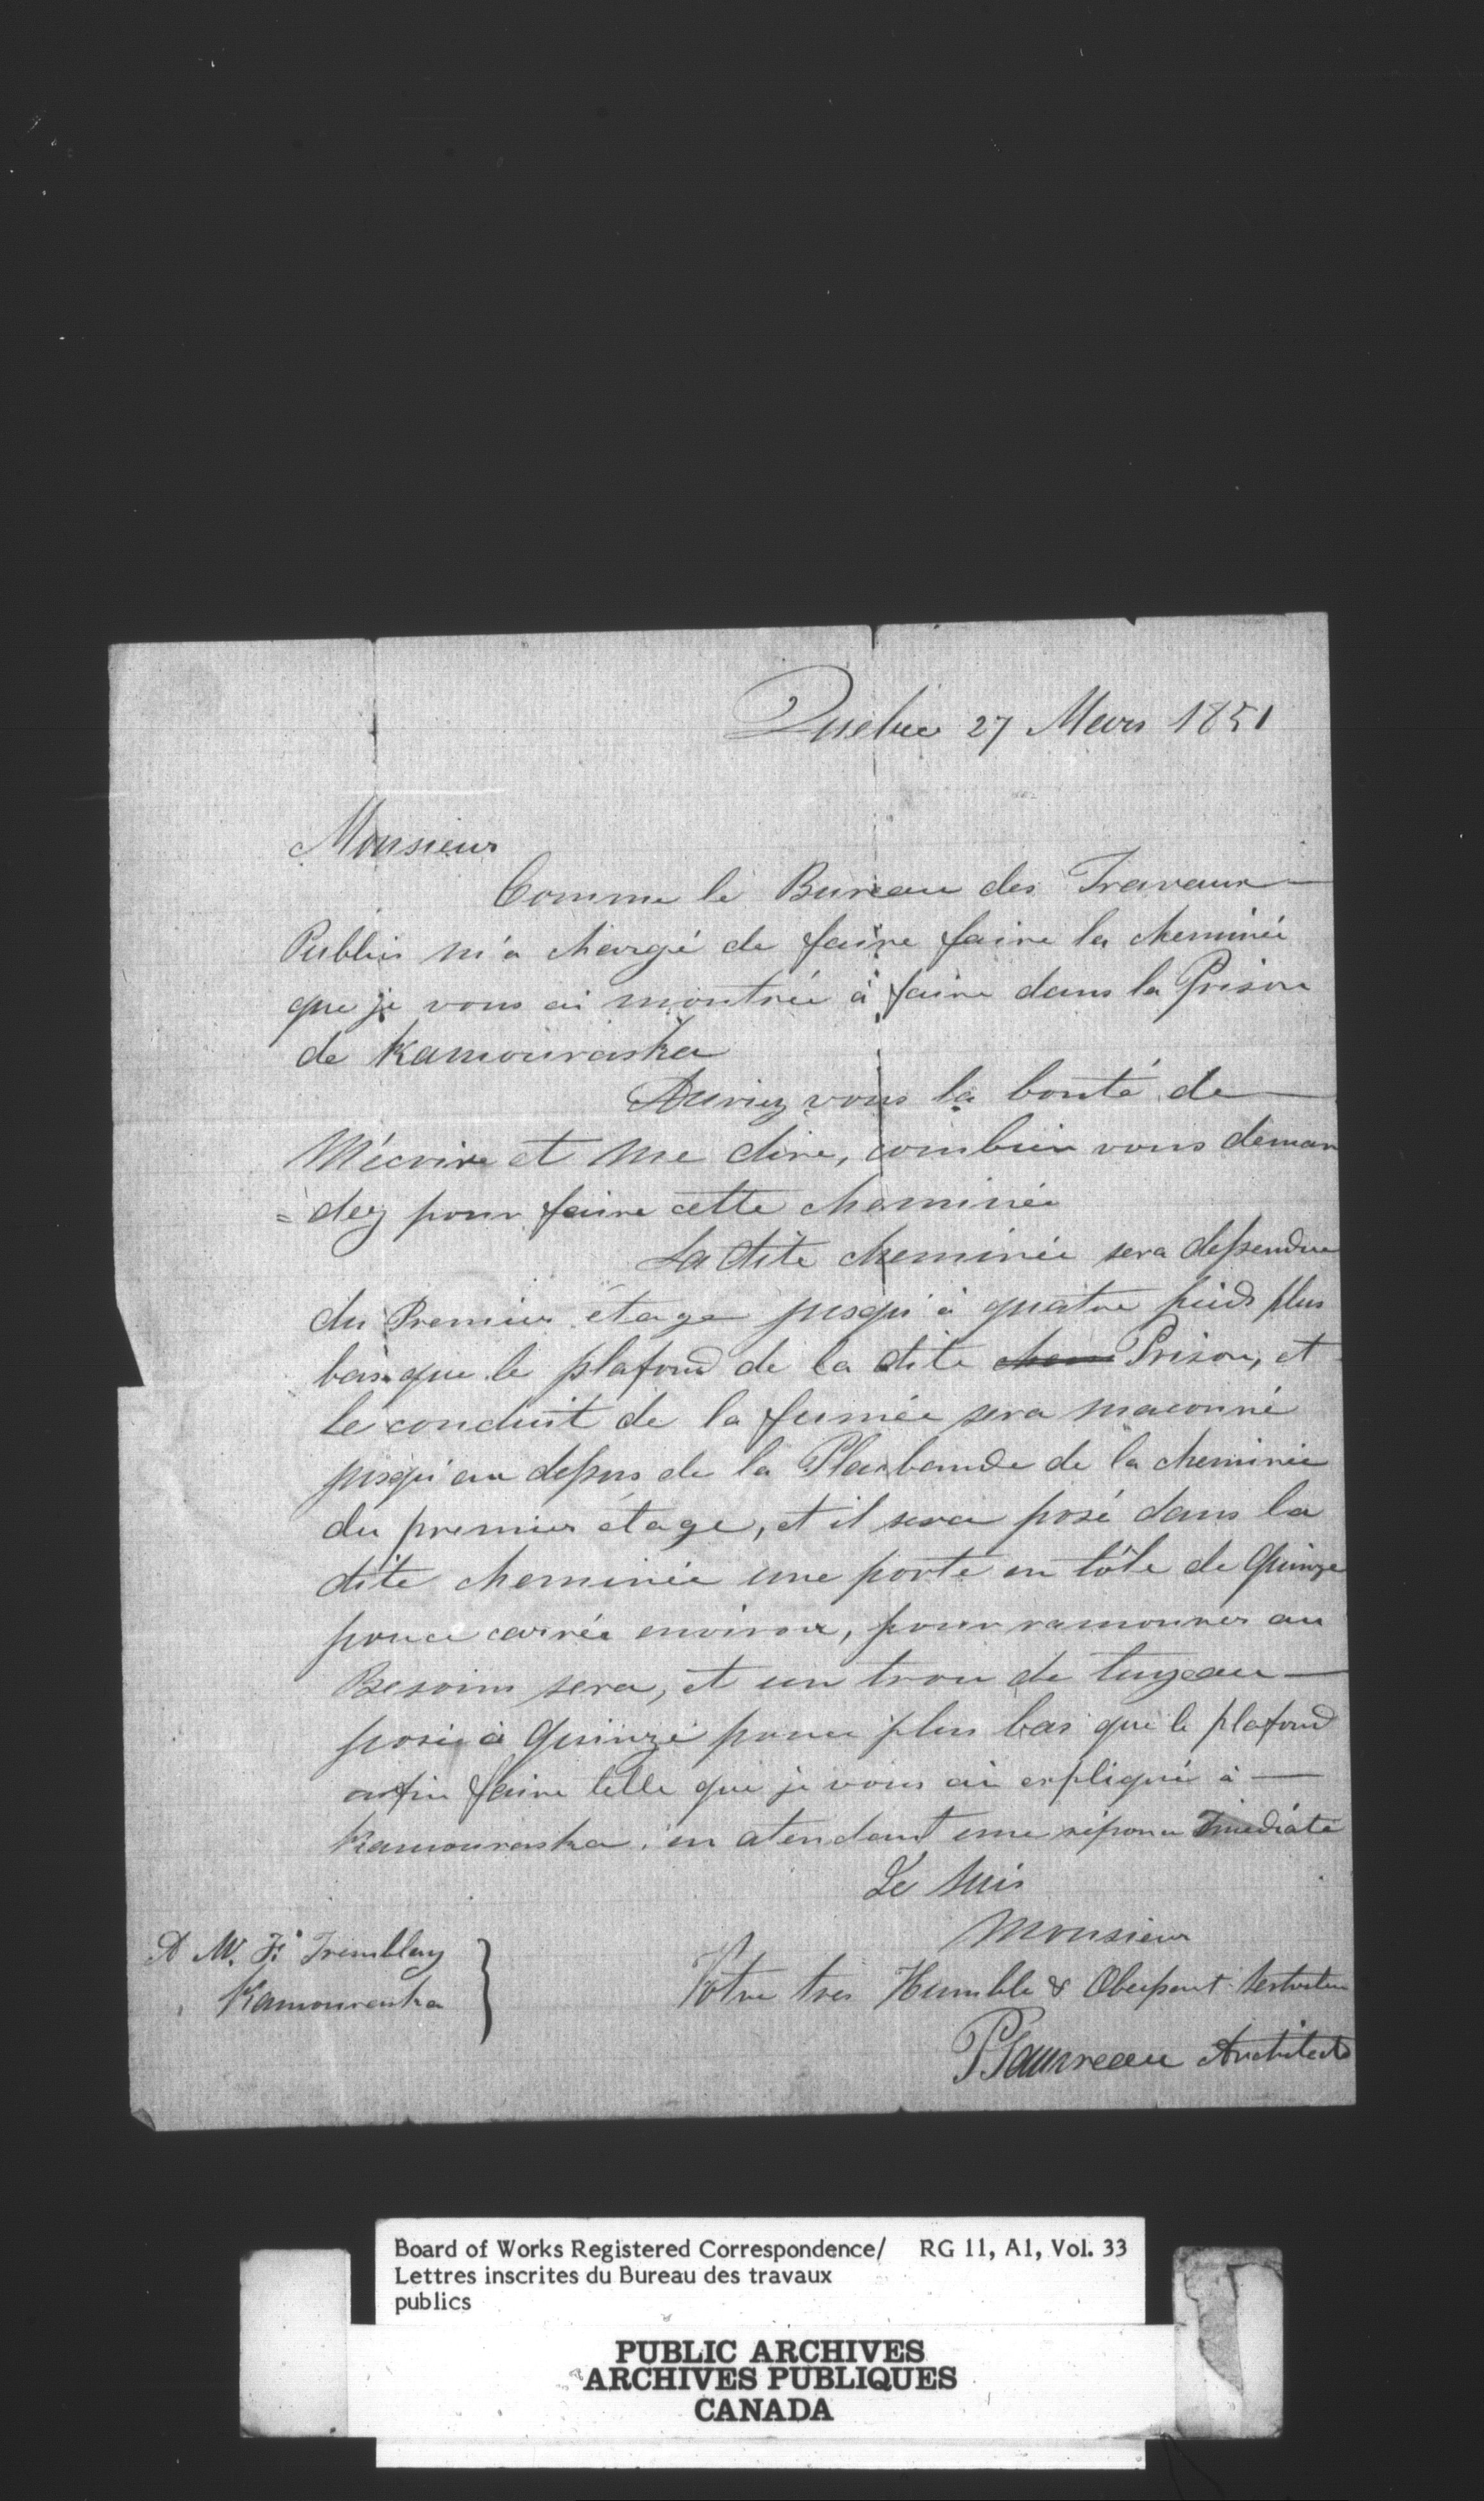 Quebec 27 Mars 1851
Monsieur
Comme le Bureau des Travaux
Publics m'a chargé de faire faire la cheminée
que je vous ai montrée à faire dans la Prison
de Kamouraska
Auriez vous la bonté de
M'écrire et me dire, combien vous deman
=dez pour faire cette cheminée
La dite cheminée sera dessendue
du Premier étage jusqu'à quatre pieds plus
bas que le plafond de la dite chem Prison, et
le conduit de la fumée sera maconné
jusqu'au dessus de la Plaxbande de la cheminée
du premier étage, et il sera posé dans la
dite cheminée une porte en tôle de Quinze
pouce carrée environ, pour ramonner au
Besoins sera, et un trou de tuyeau
posé à Quinze pouce plus bas que le plafond
enfin faire telle que je vous ai expliqué à
Kamouraska. en atendant une réponce Imediate
Je suis
Monsieur
Votre tres Humble &
A M. Fs Tremblay
Kamouraska
Architecte
Board of Works Registered Correspondence/ RG 11, A1, Vol. 33
Lettres inscrites du Bureau des travaux
publics
PUBLIC ARCHIVES
ARCHIVES PUBLIQUES
CANADA